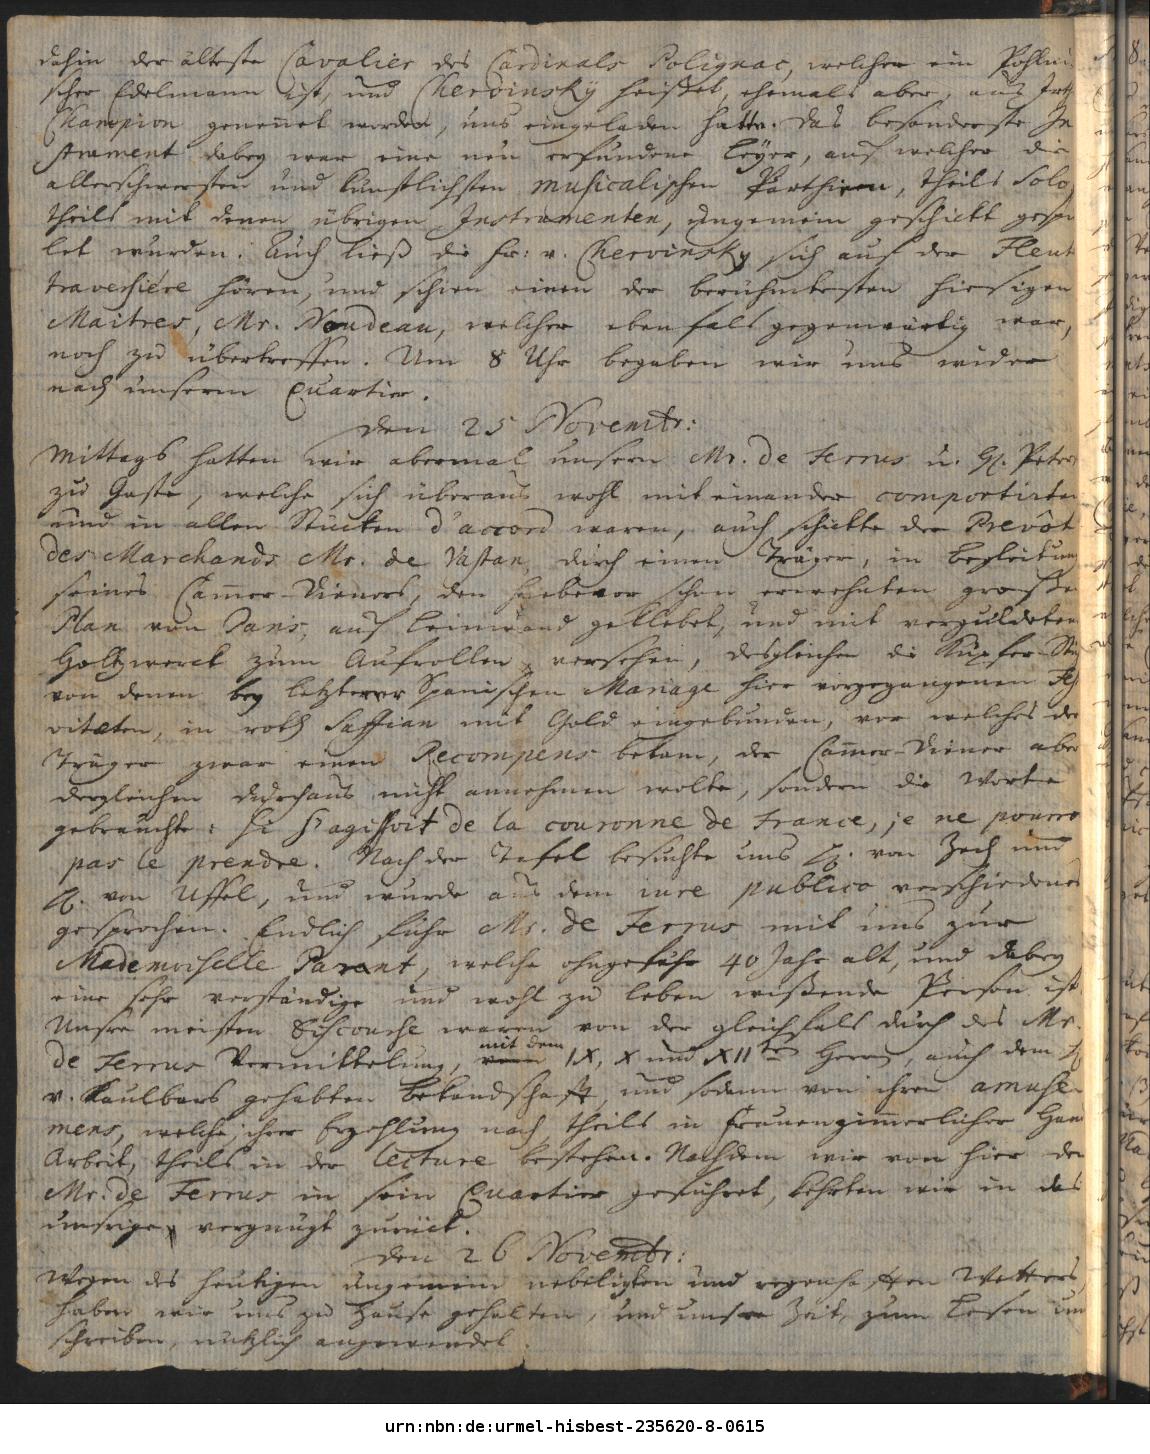 dahin der älteste Cavalier des Cardinals Polignac, welcher ein Pohlni
scher Edelmann ist, und Chervinsky heißet, ehemals aber, aus
Champion genennet worden, uns eingeladen hatte. Das besonderste In
strument dabey war eine neu erfundene Leyer, auf welcher die
allerschwersten und künstlichsten musicalischen Parthieen, theils Solo,
theils mit denen übrigen Instrumenten, ungemein geschickt gespie
let wurden. Auch ließ die Fr: v. Chervinsky sich auf der Fleut
traversiere hören, und schien einen der berühmtesten hiesigen
Maitres, Mr. Naudeau, welcher ebenfals gegenwärtig war,
noch zu übertreffen. Um 8 Uhr begaben wir uns wider
nach unserm Quartier.
den 25 Novembr:
Mittags hatten wir abermal unsern Mr. de Ferrus u. H. Peters
zu Gaste, welche sich überaus wohl mit einander comportirten
und in allen Stücken d'accord waren, auch schickte der Prevôt
des Marchands Mr. de Vastan, durch einen Träger, in Begleitung
seines Cammer-Dieners, den hiebevor schon erwehnten großen
Plan von Paris, auf Leinwand geklebet, und mit verguldeten
Holtzwerck zum Aufrollen versehen, desgleichen die Kupfer-Sti
von denen bey letzterer Spanischen Mariage hier vorgegangenen Fes
vitæten, in roth Saffian mit Gold eingebunden, vor welches der
Träger zwar einen Recompens bekam, der Cammer-Diener aber
dergleichen durchaus nicht annehmen wolte, sondern die Worte
gebrauchte: Si s'agissoit de la couronne de France, je ne pourro
pas le prendre. Nach der Tafel besuchte uns H. von Zech und
H. von Uffel, und wurde aus dem iure publico verschiedenes
gesprochen. Endlich fuhr Mr. de Ferrus mit uns zur
Mademoiselle Parant, welche ohngefehr 40 Jahr alt, und dabey
eine sehr verständige und wohl zu leben wißende Person ist.
Unsre meisten Discourse waren von der gleichfals durch des Mr.
de Ferrus Vermittelung, mit dem IX, X und XIIten Herrn, auch dem H.
v. Kaulbars gehabten Bekandschafft, und sodann von ihren amuse
mens, welche, ihrer Erzehlung nach theils in Frauenzimmerlicher Han
Arbeit, theils in der lecture bestehen. Nachdem wir von hier den
Mr. de Ferrus in sein Quartier geführet, kehrten wir in das
unsrige vergnügt zurück.
den 26 Novembr:
Wegen des heutigen ungemein nebeligten und regenhafften Wetters,
haben wir uns zu Hause gehalten, und unsre Zeit, zum Lesen und
schreiben, nützlich angewendet.
urn:nbn:de:urmel-hisbest-235620-8-0615